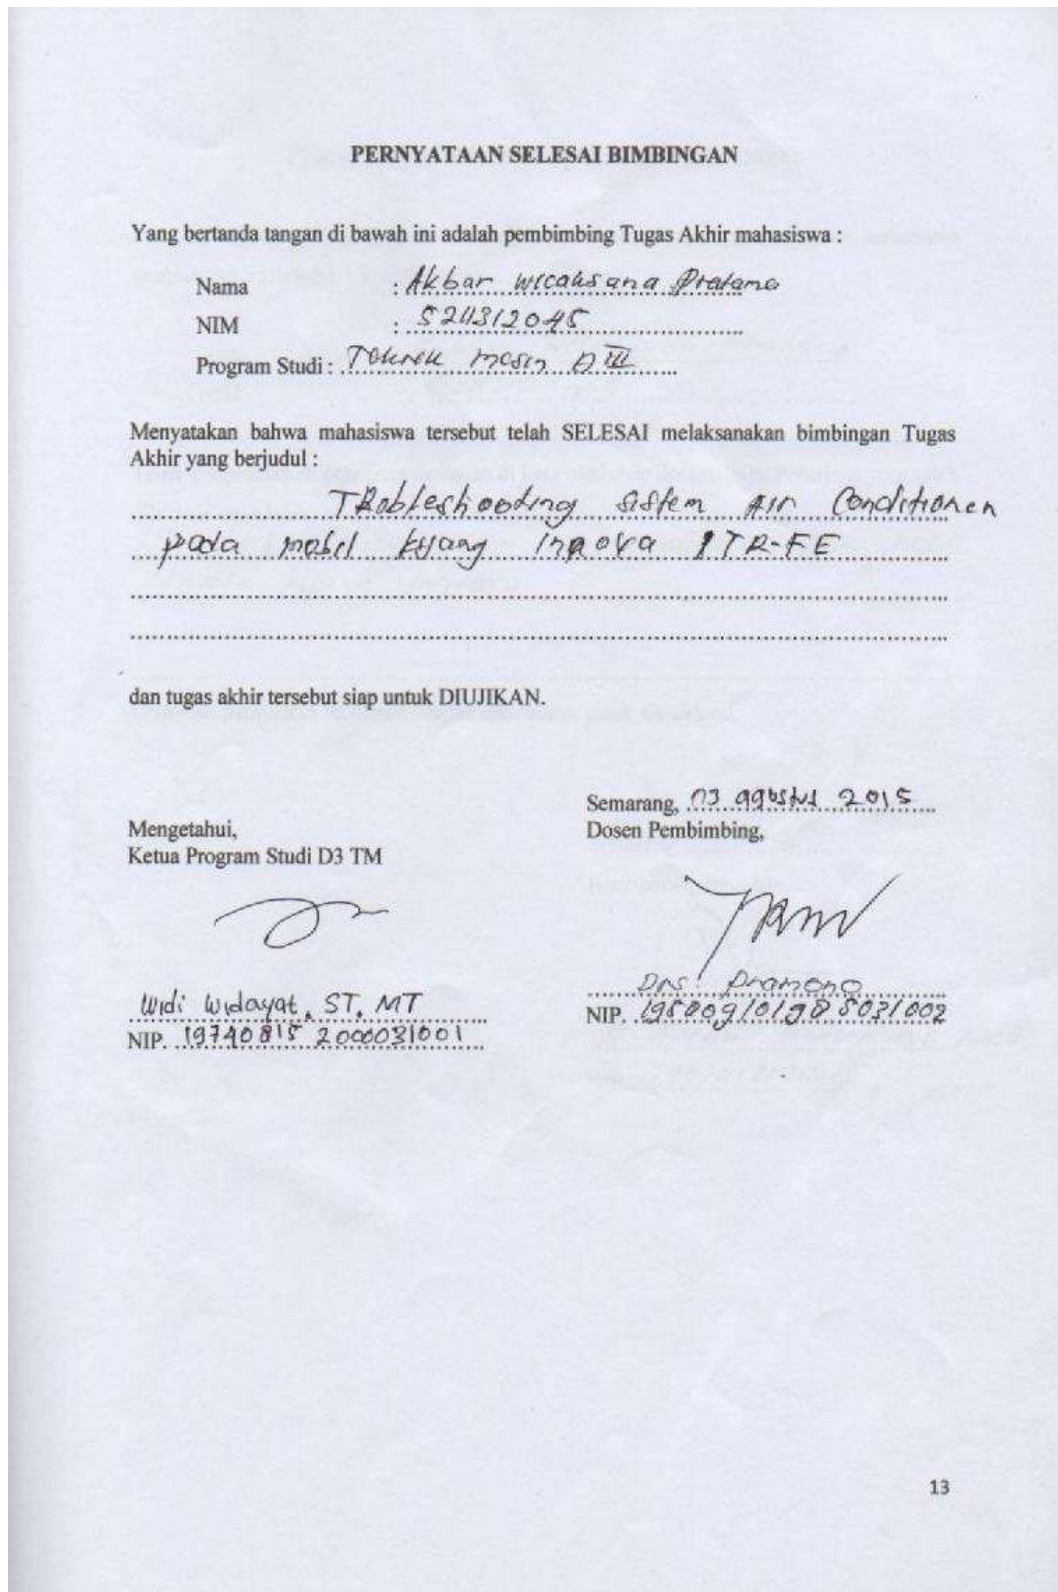 PERNYATAAN SELESAI BIMBINGAN
Yang bertanda tangan di bawah ini adalah pembimbing Tugas Akhir mahasiswa :
Nama : Akbar Wicaksana Pratama
NIM : 5211312045
Program Studi : Teknik Mesin DIII
Menyatakan bahwa mahasiswa tersebut telah SELESAI melaksanakan bimbingan Tugas
Akhir yang berjudul :
TRobleshooding sistem Air Conditionen
pada mobil kijang Innova 1TR-FE
dan tugas akhir tersebut siap untuk DIUJIKAN.
Semarang, 03 agustus 2015
Mengetahui,
Dosen Pembimbing,
Ketua Program Studi D3 TM
Widi Widayat, ST, MT
NIP. 19740815 2000031001
Drs. Pramono
NIP. 195809101985031002
13